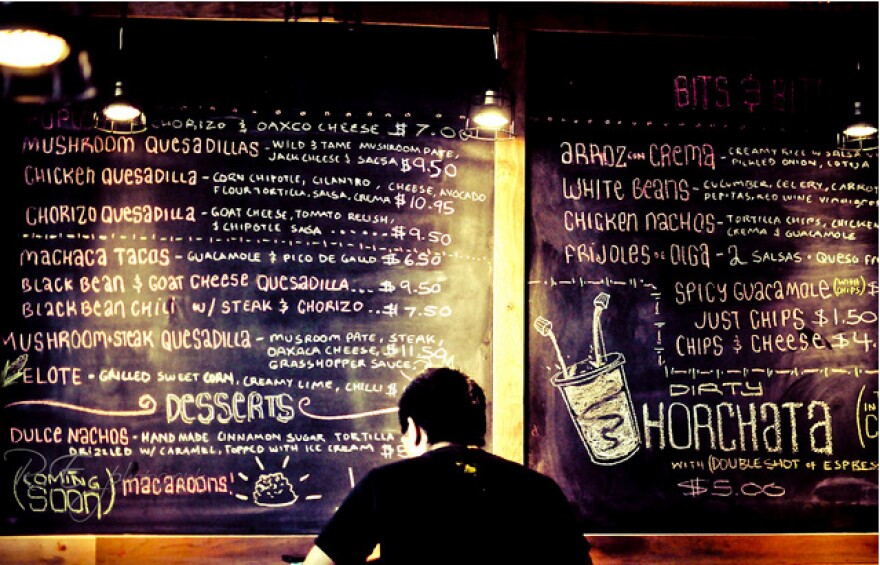 CHORIZO & OAXCO CHEESE $7.00
MUSHROOM QUESADILLAS - WILD & TAME MUSHROOM PATE,
JACK CHEESE & SALSA $9.50
CHICKEN QUESADILLA - CORN CHIPOTLE, CILANTRO, CHEESE, AVOCADO
FLOUR TORTILLA, SALSA, CREMA $10.95
CHORIZO QUESADILLA - GOAT CHEESE, TOMATO RELISH,
& CHIPOTLE SALSA ....... $9.50
MACHACA TACOS - GUACAMOLE & PICO DE GALLO $6.50
BLACK BEAN & GOAT CHEESE QUESADILLA... $9.50
BLACK BEAN CHILI W/ STEAK & CHORIZO... $7.50
MUSHROOM-STEAK QUESADILLA - MUSROOM PATE, STEAK,
OAXACA CHEESE, $11.50
GRASSHOPPER SAUCE
ELOTE - GRILLED SWEET CORN, CREAMY LIME, CHILLI $
DESSERTS
DULCE NACHOS - HANDMADE CINNAMON SUGAR TORTILLA
DRIZZLED W/ CARAMEL, TOPPED WITH ICE CREAM $
(COMING SOON) MACAROONS!
BITS &
ARROZ CON CREMA - CREAMY RICE W/ SALSA
PICKLED ONION, COTIJA
WHITE BEANS - CUCUMBER, CELERY, CARROT
PEPITAS, RED WINE VINAIGRE
CHICKEN NACHOS - TORTILLA CHIPS, CHICKEN
CREMA & GUACAMOLE
FRIJOLES DE OLGA - 2 SALSAS • QUESO FR
SPICY GUACAMOLE (WITH CHIPS) $
JUST CHIPS $1.50
CHIPS & CHEESE $4.
DIRTY
HORCHATA
WITH (DOUBLE SHOT OF ESPRESS
$5.00